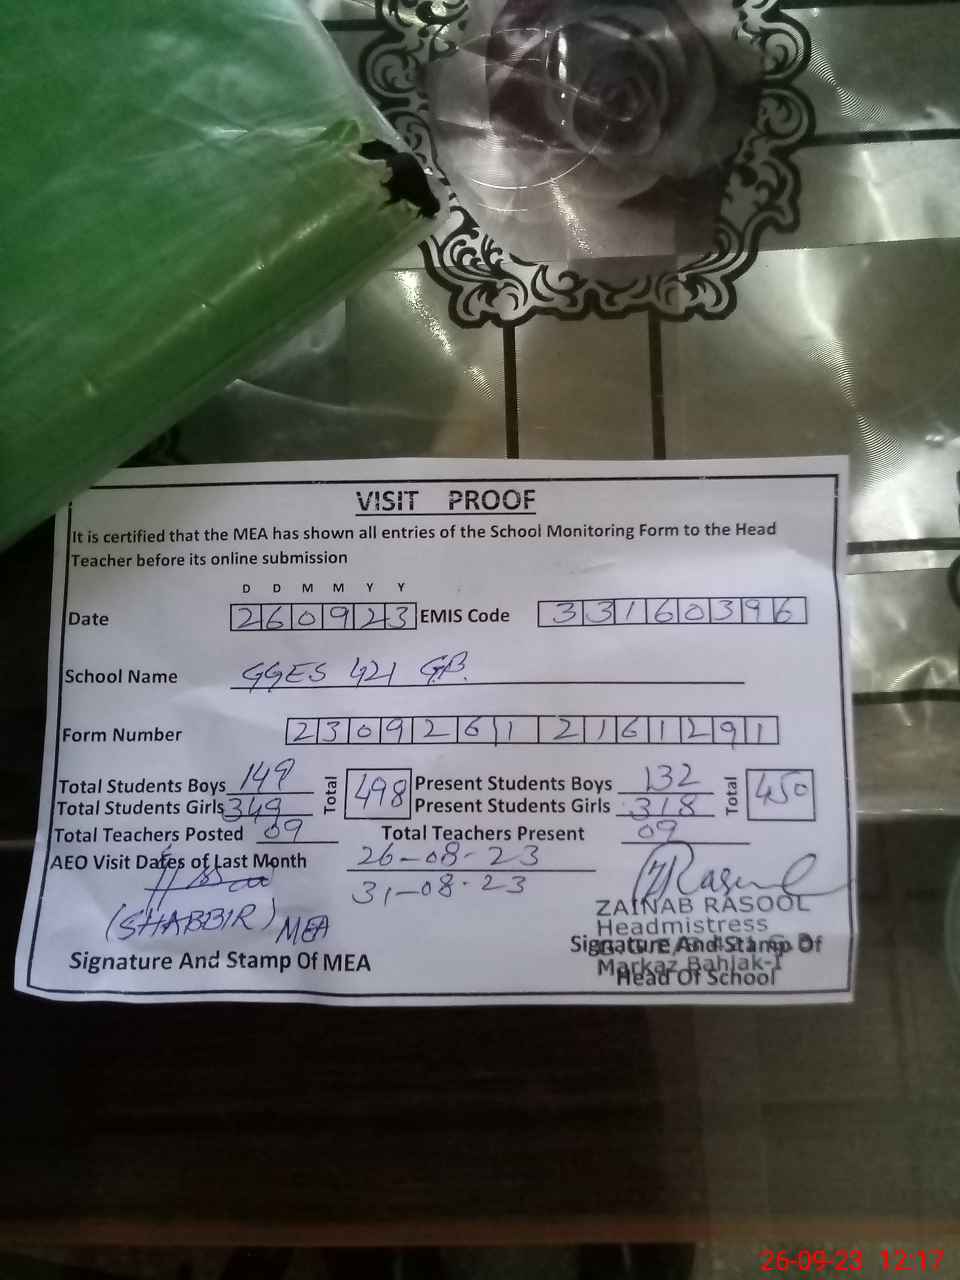 VISIT PROOF
It is certified that the MEA has shown all entries of the School Monitoring Form to the Head
Teacher before its online submission
D D M M Y Y
Date 260923 EMIS Code 33160396
School Name GGES 421 GB.
Form Number 2309261 2161291
Total Students Boys 149 Total 498 Present Students Boys 132 Total 450
Total Students Girls 349 Present Students Girls 318
Total Teachers Posted 09 Total Teachers Present 09
AEO Visit Dates of Last Month 26-08-23
31-08-23
(SHABBIR) MEA
ZAINAB RASOOL
Headmistress
Signature And Stamp Of MEA
Signature And Stamp Of
Markaz Bahlak-I
Head Of School
26-09-23 12:17